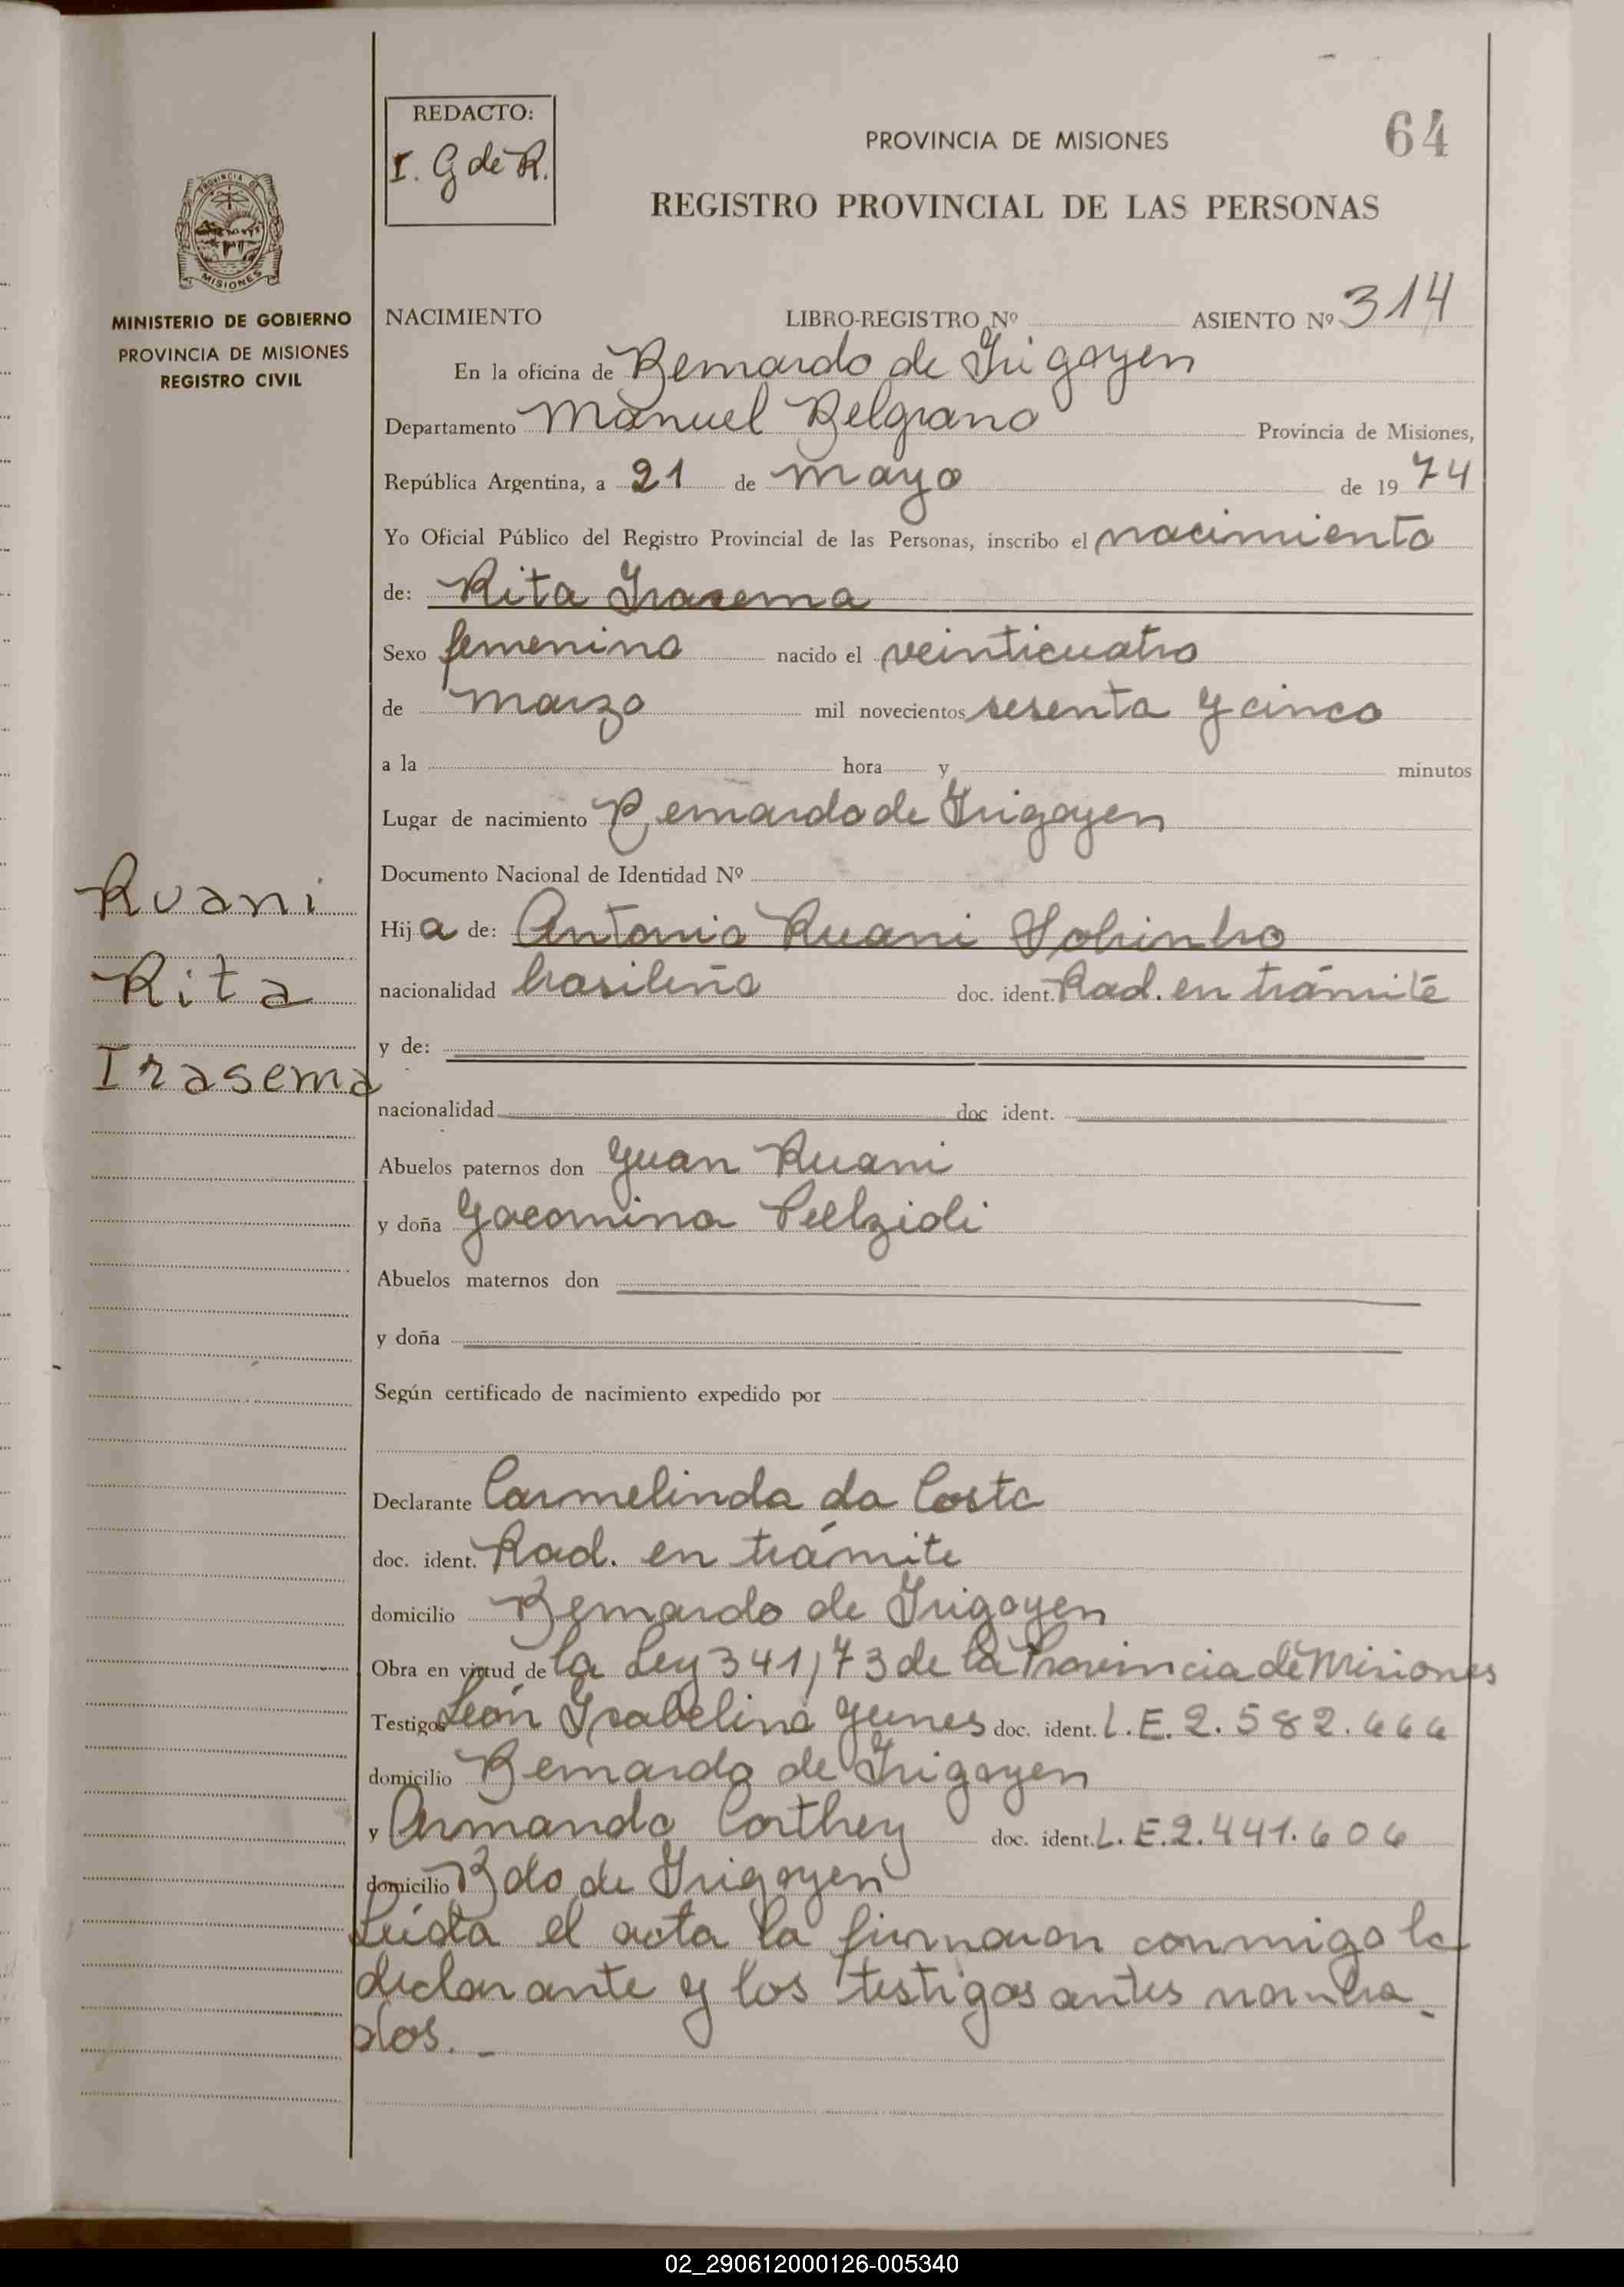 REDACTO:
I. G de R.
PROVINCIA DE MISIONES
64
REGISTRO PROVINCIAL DE LAS PERSONAS
PROVINCIA DE
MISIONES
MINISTERIO DE GOBIERNO
PROVINCIA DE MISIONES
REGISTRO CIVIL
NACIMIENTO LIBRO-REGISTRO Nº ASIENTO Nº 314
En la oficina de Bernardo de Irigoyen
Departamento Manuel Belgrano Provincia de Misiones,
República Argentina, a 21 de mayo de 1974
Yo Oficial Público del Registro Provincial de las Personas, inscribo el nacimiento
de: Rita Irasema
Sexo femenino nacido el veinticuatro
de marzo mil novecientos sesenta y cinco
a la hora y minutos
Lugar de nacimiento Bernardo de Irigoyen
Documento Nacional de Identidad Nº
Ruani
Rita
Irasema
Hija de: Antonio Ruani Sobinho
nacionalidad brasileña doc. ident. Rad. en trámite
y de:
nacionalidad doc ident.
Abuelos paternos don Juan Ruani
y doña Jacomina
Abuelos maternos don
y doña
Según certificado de nacimiento expedido por
Declarante Carmelinda da Costa
doc. ident. Rad. en trámite
domicilio Bernardo de Irigoyen
Obra en virtud de la Ley 341/73 de la Provincia de Misiones
Testigos León Isabelino doc. ident. L.E. 2.582.666
domicilio Bernardo de Irigoyen
y Armando Corthey doc. ident. L.E. 2.441.606
domicilio Bdo de Irigoyen
Leída el acta la firmaron conmigo la
declarante y los testigos antes nombra-
dos. -
02_290612000126-005340